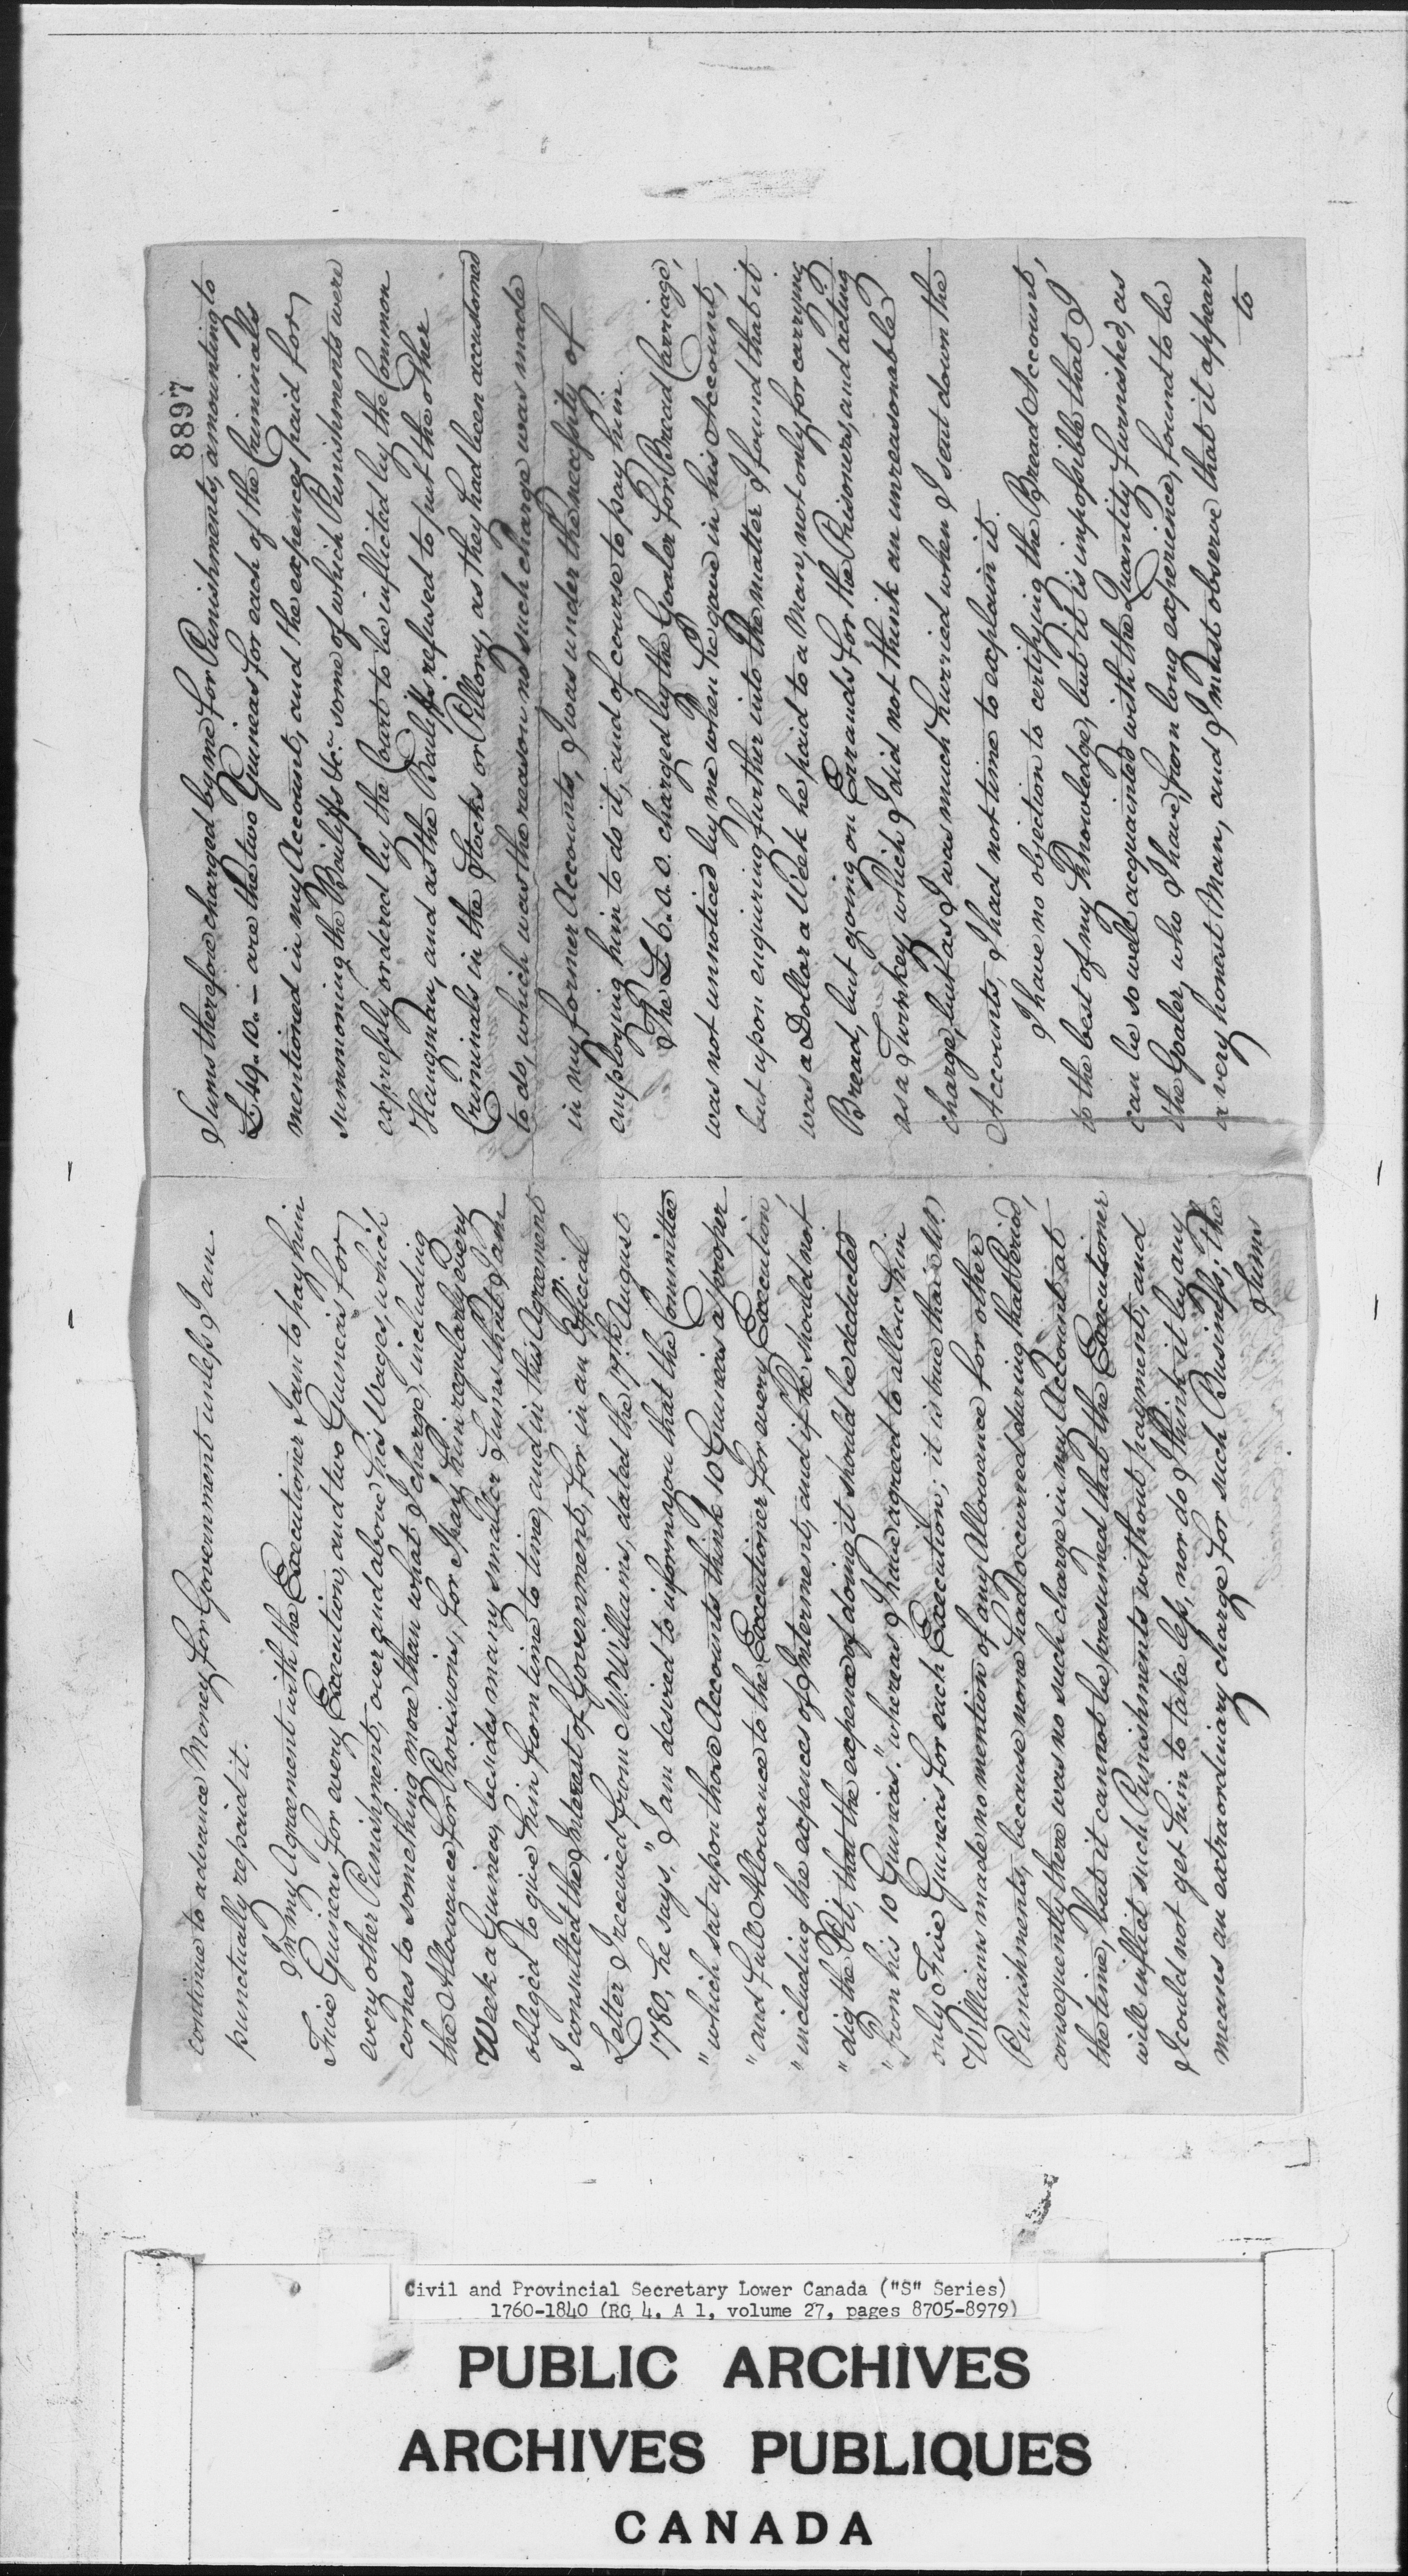 continue to advance Money for Government unless I am
punctually repaid it.
In my Agreement with the Executioner I am to pay him
Five Guineas for every Execution, and two Guineas for
every other Punishment, over and above his Wages, which
comes to something more than what I charge, including
the Allowance for Provisions, for I pay him regularly every
Week a Guinea, besides many smaller Sums that I am
obliged to give him from time to time, and in this Agreement
I consulted the Interest of Government, for in an Official
Letter I received from Mr. Williams, dated the 17th August
1780, he says, "I am desired to inform you that the Committee
"which sat upon those Accounts think 10 Guineas a proper
"and full Allowance to the Executioner for every Execution,
"including the expences of Interment, and if he should not
"dig the Pit, that the expence of doing it should be deducted
"from his 10 Guineas." whereas I have agreed to allow him
only Five Guineas for each Execution; it is true that Mr.
Williams made no mention of any Allowance for other
Punishments, because none had occurred during that Period,
consequently there was no such charge in my Account at
the time, but it cannot be presumed that the Executioner
will inflict such Punishments without payment, and
I could not get him to take less, nor do I think it by any
means an extraordinary charge for such Business; the
Sums
8897
Sums therefore charged by me for Punishments, amounting to
£49.10.- are the two Guineas for each of the Criminals
mentioned in my Account, and the expences paid for
summoning the Bailiffs &c. some of which Punishments were
expressly ordered by the Court to be inflicted by the Common
Hangman, and as the Bailiffs refused to put the other
Criminals in the Stocks or Pillory, as they had been accustomed
to do, which was the reason no such charge was made
in my former Accounts, I was under the necessity of
employing him to do it, and of course to pay him.
The £6.0.0. charged by the Goaler for Bread Carriage,
was not unnoticed by me when he gave in his Account,
but upon enquiring further into the matter I found that it
was a Dollar a Week he paid to a Man, not only for carrying
Bread, but going on Errands for the Prisoners, and acting
as a Turnkey, which I did not think an unreasonable
charge, but as I was much hurried when I sent down the
Accounts, I had not time to explain it.
I have no objection to certifying the Bread Account,
to the best of my Knowledge, but it is impossible that I
can be so well acquainted with the Quantity furnished, as
the Goaler, who I have, from long experience, found to be
a very honest Man, and I must observe that it appears
to
Civil and Provincial Secretary Lower Canada ("S" Series)
1760-1840 (RG 4, A 1, volume 27, pages 8705-8979)
PUBLIC ARCHIVES
ARCHIVES PUBLIQUES
CANADA